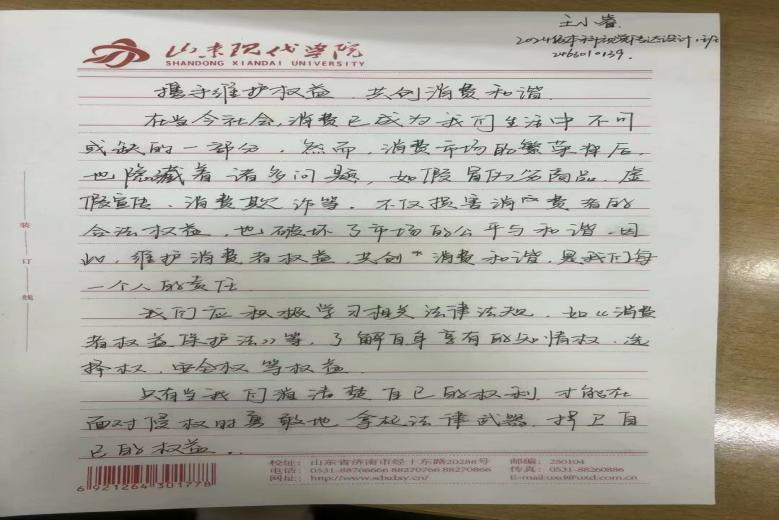 王小睿
2024级本科视觉传达设计
山东现代学院
SHANDONG XIANDAI UNIVERSITY
携手维护权益 共创消费和谐
在当今社会,消费已成为我们生活中不可
或缺的一部分。然而,消费市场的繁荣背后,
也隐藏着诸多问题,如假冒伪劣商品、虚
假宣传、消费欺诈等。不仅损害消费者的
合法权益,也破坏了市场的公平与和谐。因
此,维护消费者权益,共创消费和谐,是我们每
一个人的责任
我们应积极学习相关法律法规,如《消费
者权益保护法》等,了解自身享有的知情权、选
择权、安全权等权益。
只有当我们清楚自己的权利,才能在
面对侵权时勇敢地拿起法律武器,捍卫自
己的权益..
装
订
线
校址:山东省济南市经十东路20288号 邮编:250104
电话:0531-88766666 88270766 88270866 传真:0531-88260886
网址:http://www.sdxdxy.cn/ E-mail:uxd@uxd.com.cn
6 921264 301778